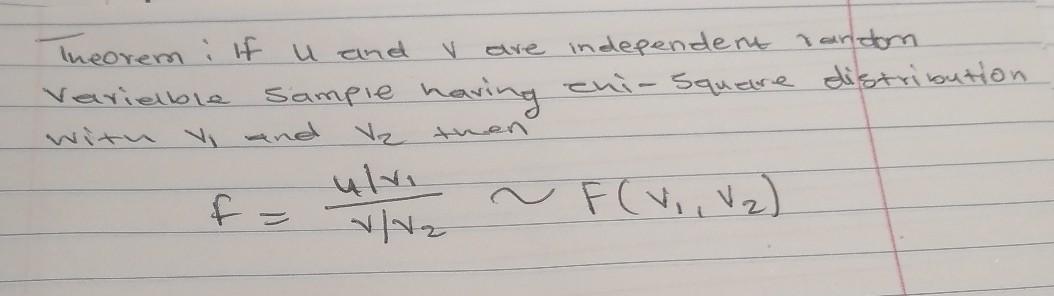 Theorem : If u and v are independent random
Varielble Sample having chi-Square distribution
with v₁ and v₂ then
f = (u/v₁)/(v/v₂) ~ F(v₁, v₂)